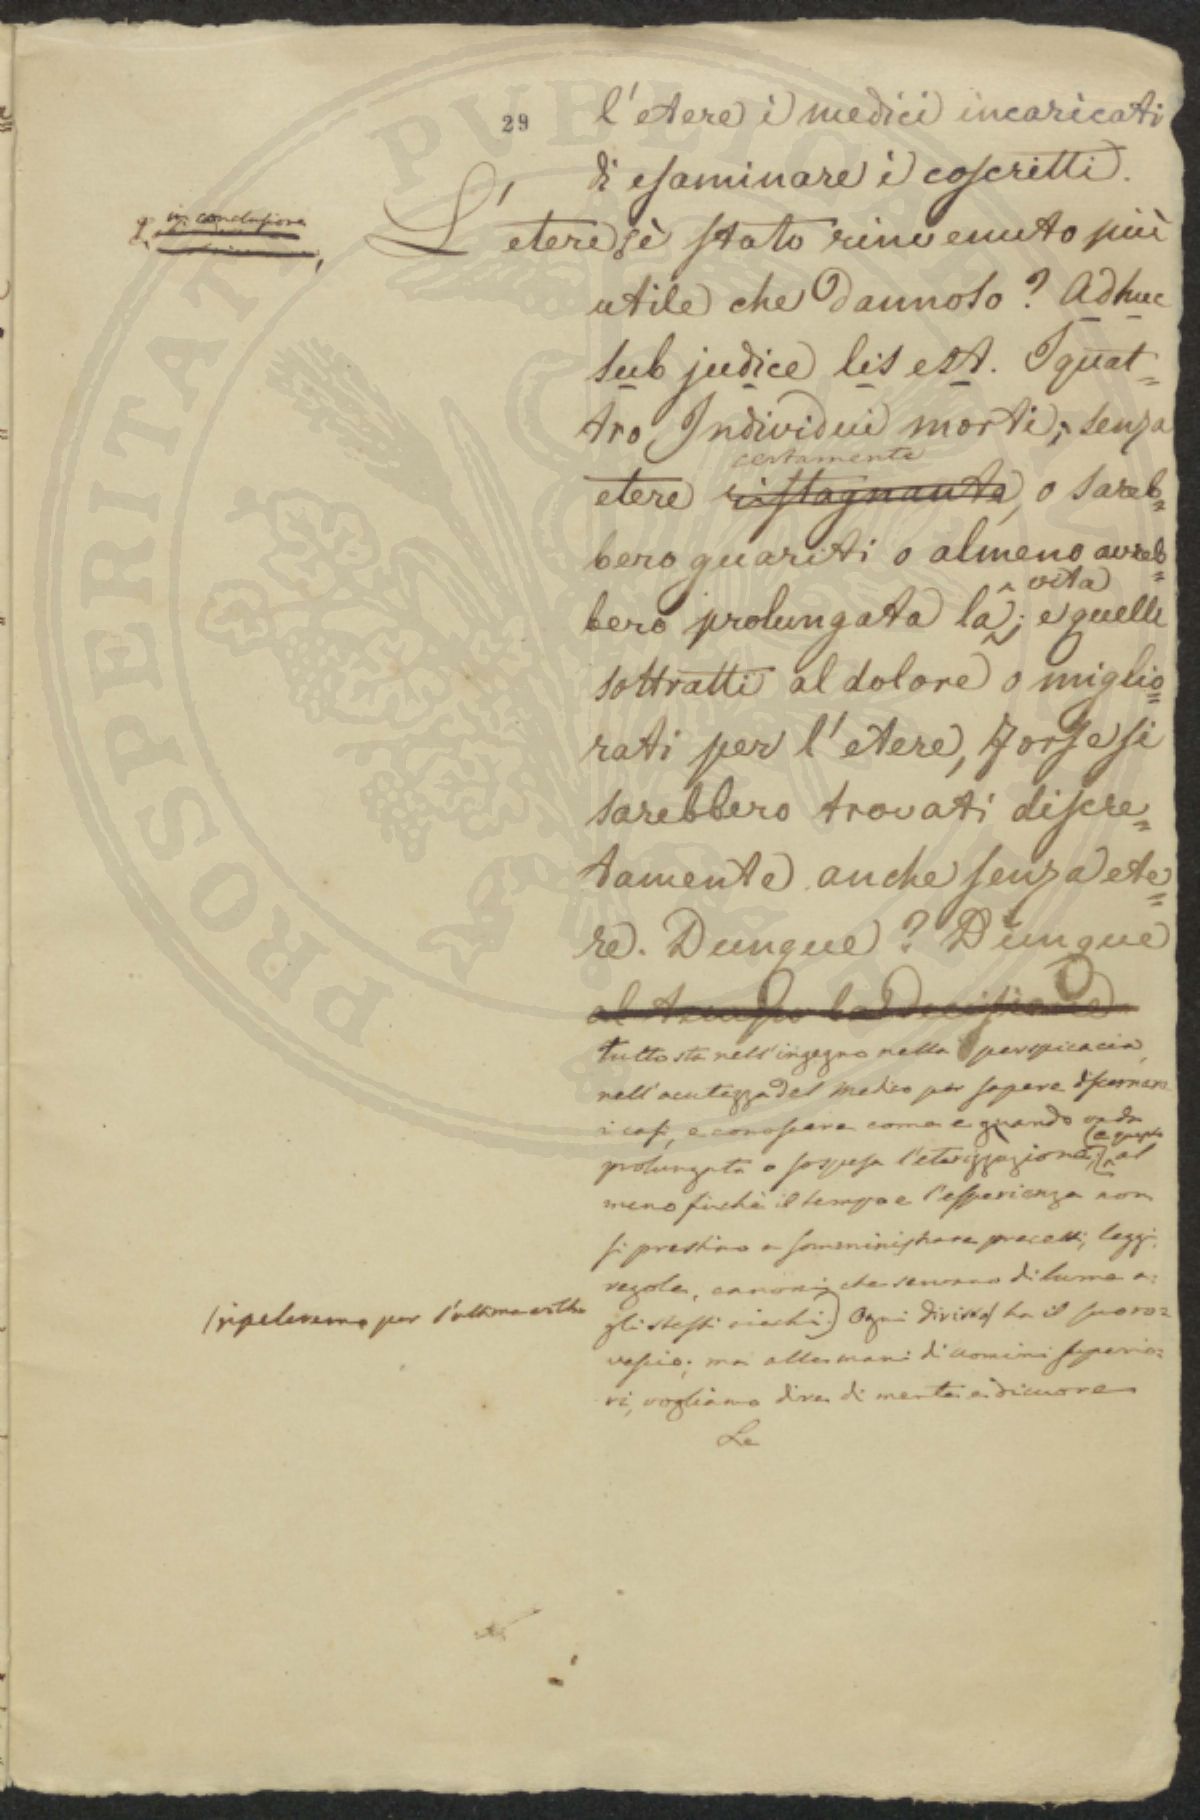 29
l'etere i medici incaricati
di esaminare i coscritti.
in conclusione
L'etere è stato rinvenuto più
utile che dannoso? Adhuc
sub judice lis est. I quat=
tro Individui morti, senza
certamente
etere ristagnante, o sareb=
bero guariti o almeno avreb=
vita
bero prolungata la; e quelli
sottratti al dolore o miglio=
rati per l'etere, forse si
sarebbero trovati discre=
tamente anche senza ete=
re. Dunque? Dunque
al tempo la decisione
tutto sta nell'ingegno nella perspicacia,
nell'acutezza del medico per sapere discernere
i casi, e conoscere come e quando vada
(e questo
prolungata o sospesa l'eterizzazione, al
meno finchè il tempo e l'esperienza non
si prestino a somministrare precetti, leggi,
regole, canoni che servano di lume a=
gli stessi ciechi.) Ogni ha il suo ro=
(ripeteremo per l'ultima volta
vescio; ma alle mani di uomini superio=
ri, vogliamo dire di mente e di cuore
Le
PROSPERITATI PVBLICAE